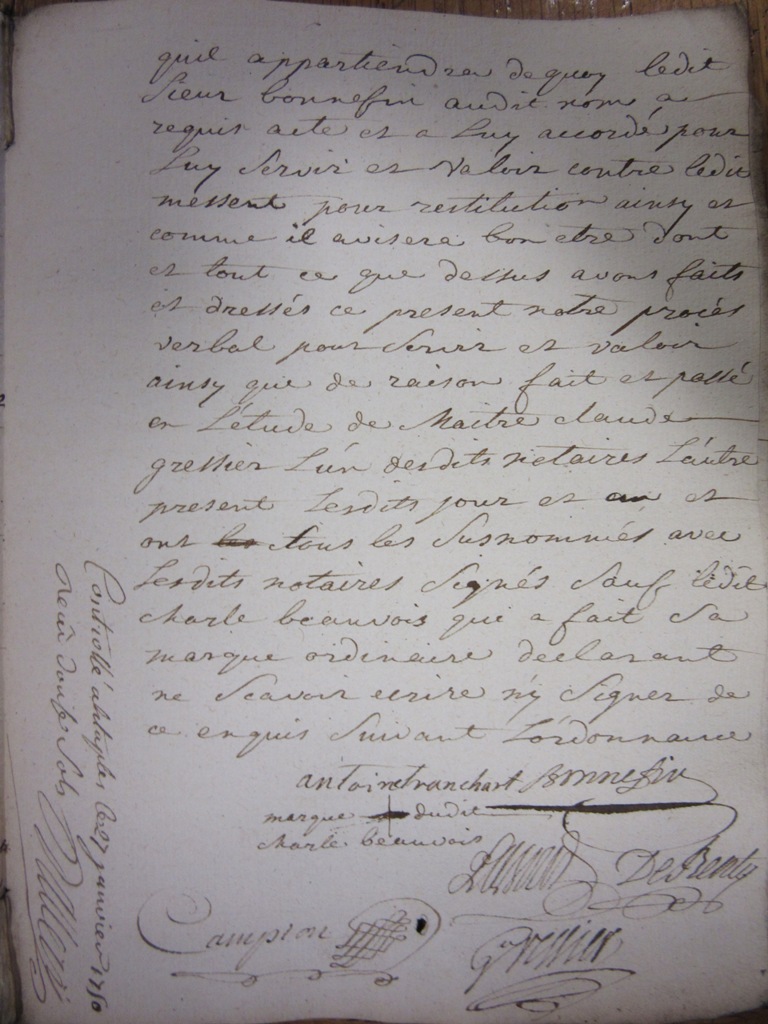 quil appartiendra de quoy ledit
Sieur bonnefin audit nom a
requis acte et a Luy accordé pour
Luy Servir et Valoir contre ledit
messent pour restitution ainsy et
comme il avisera bon etre dont
et tout ce que dessus avons faits
et dressés ce present notre procés
verbal pour Servir et valoir
ainsy que de raison fait et passé
en L'étude de Maitre claude
gressier L'un desdits notaires L'autre
present Lesdits jour et an et
ont tous les Susnommés avec
Lesdits notaires Signés Sauf ledit
charle beauvois qui a fait Sa
marque ordinaire declarant
ne Scavoir ecrire n'y Signer de
ce enquis Suivant L'ordonnance
antoine tranchart Bonnefin
marque dudit
charle beauvois
DeBenty
Campion
Gressier
Controllé le 27 janvier 1750
Recu douze Sols